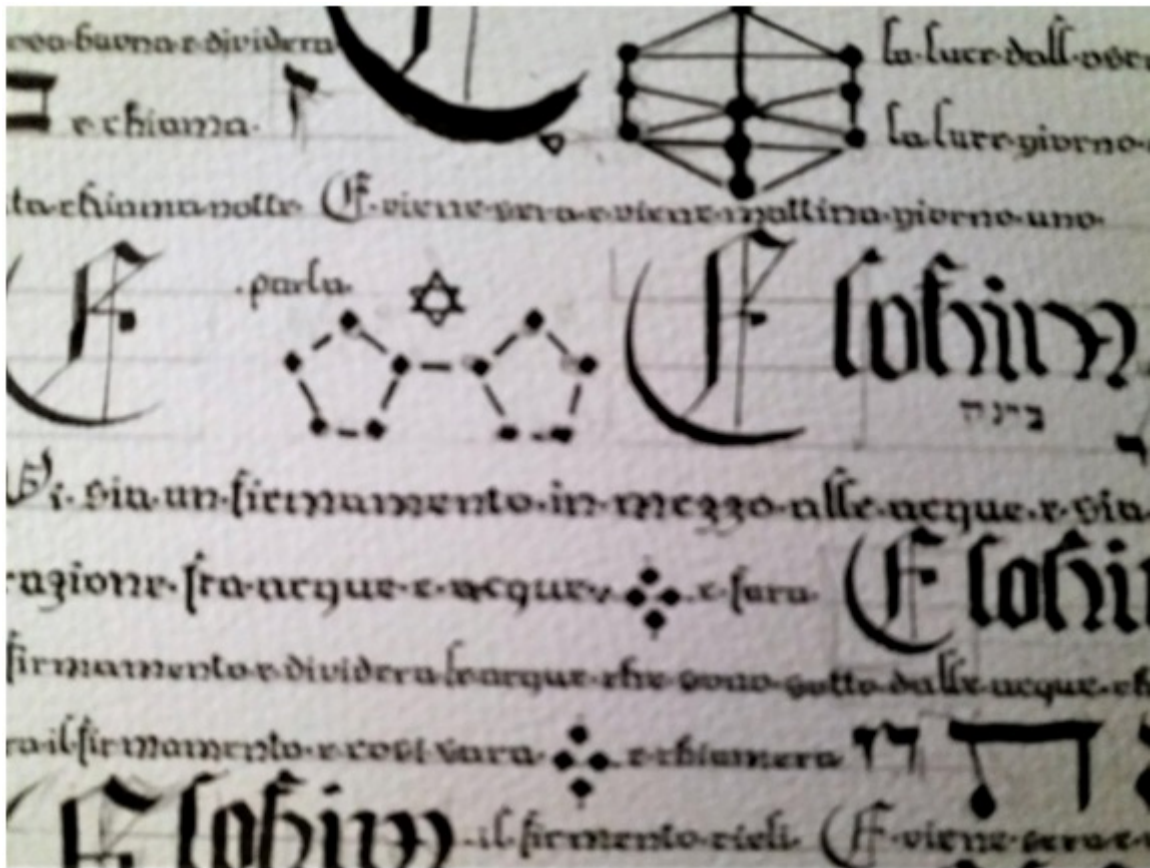 buona·e·dividera la·luce·dall·
e·chiama· la·luce·giorno·
ta·chiama·notte E·viene·sera·e·viene·mattina·giorno·uno·
E ·parla· Elohim
בינה
Vi·sia·un·firmamento·in·mezzo·alle·acque·e·sia·
agione·fra·acque·e·acque· e·fara· Elohi
firmamento·e·dividera·le·acque·che·sono·sotto·dalle·acque·ch
ra·il·firmamento·e·cosi·sara· e·chiamera
Elohim ·il·firmento·cieli· E·viene·sera·e·